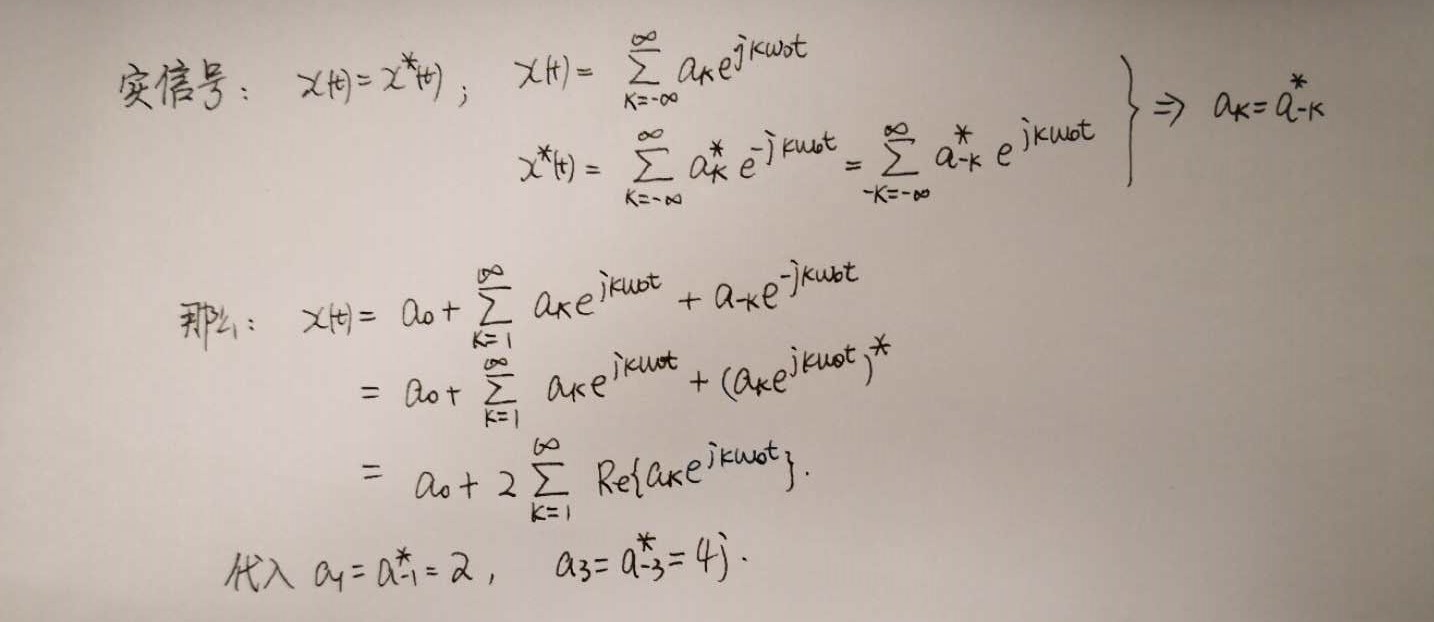 实信号: x(t)=x*(t); x(t)= ∑_{k=-∞}^{∞} a_k e^{jkω₀t}
x*(t)= ∑_{k=-∞}^{∞} a_k^* e^{-jkω₀t} = ∑_{-k=-∞}^{∞} a_{-k}^* e^{jkω₀t} } ⇒ a_k=a_{-k}^*
那么: x(t)= a₀+ ∑_{k=1}^{∞} a_k e^{jkω₀t} + a_{-k} e^{-jkω₀t}
= a₀+ ∑_{k=1}^{∞} a_k e^{jkω₀t} + (a_k e^{jkω₀t})^*
= a₀+ 2 ∑_{k=1}^{∞} Re{a_k e^{jkω₀t}}.
代入 a₁=a_{-1}^*=2, a₃=a_{-3}^*=4j.